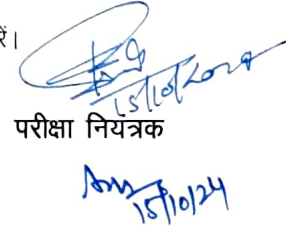 रें।
15/10/2024
परीक्षा नियंत्रक
15/10/24